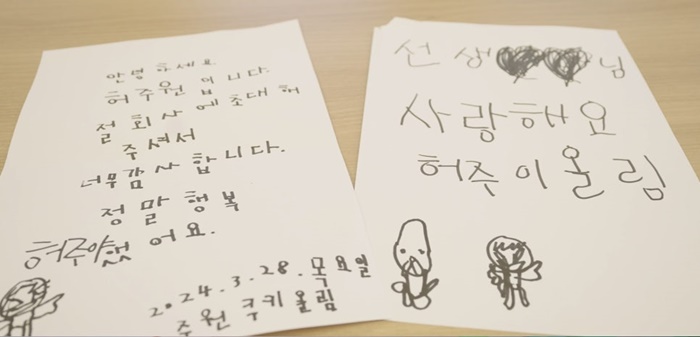 안녕하세요
허주원 입니다.
절 회사 에 초대 허
주셔서
너무 감사 합니다.
정말 행복
했어요.
2024.3.28.목요일
주원 쿠키 올림
선생 님
사랑해요
허주이 올림